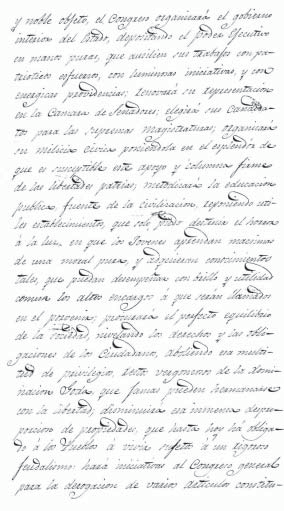 y noble objeto, el Congreso organizará el gobierno
interior del Estado, depositando el poder Ejecutivo
en manos puras, que auxilien sus trabajos con pa-
trioticos esfuerzos, con luminosas iniciativas, y con
energicas providencias; renovará su representacion
en la Camara de Senadores; elegirá sus Candida-
tos para las supremas magistraturas; organizará
su milicia civica poniendola en el esplendor de
que es susceptible este apoyo y columna firme
de las libertades patrias; metodizará la educacion
publica, fuente de la Civilizacion, reponiendo uti-
les establecimientos, que solo pudo destruir el horror
á la luz, en que los Jovenes aprendan maximas
de una moral pura, y adquieran conocimientos
tales, que puedan desempeñar con brillo y utilidad
comun los altos encargos á que serán llamados
en el porvenir; procurará el perfecto equilibrio
de la sociedad, nivelando los derechos y las obli-
gaciones de los Ciudadanos, aboliendo esa multi-
tud de privilegios, restos vergonzosos de la domi-
nacion Goda, que jamas pueden hermanarse
con la libertad; disminuirá esa inmensa despro-
porcion de propiedades, que hasta hoy ha obliga-
do á los Pueblos á vivir sujetos á un riguroso
feudalismo: hará iniciativas al Congreso general
para la derogacion de varios articulos constitu-